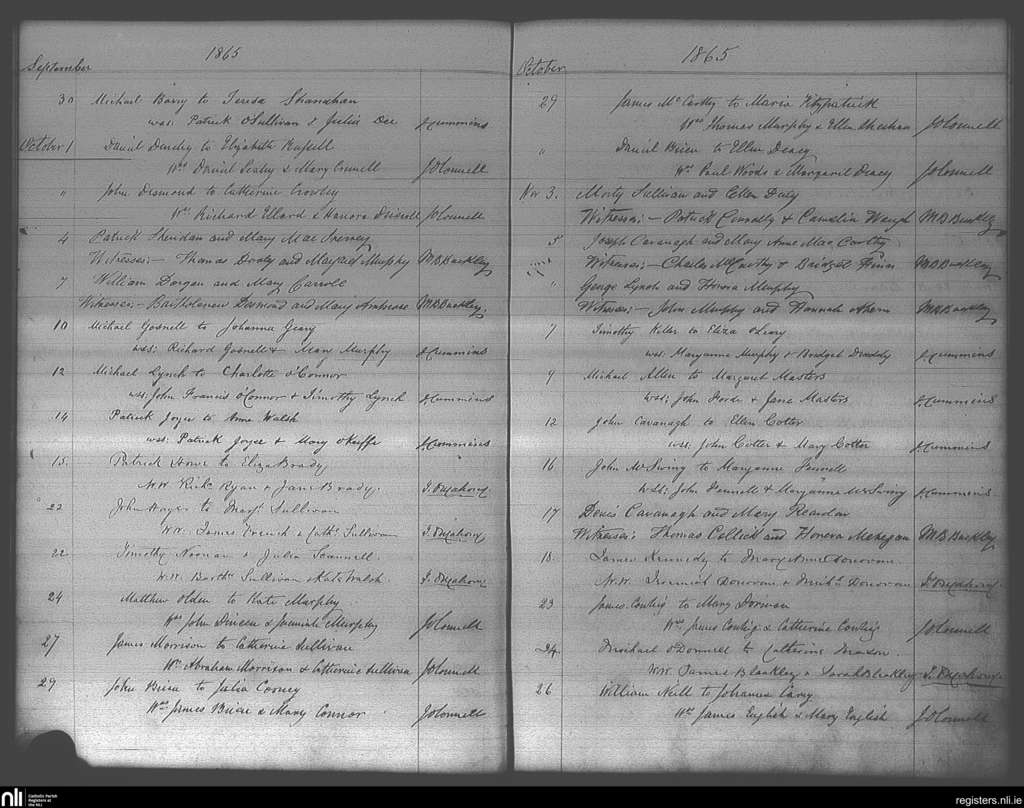 1865
September
30 Michael Barry to Teresa Shanahan
wss: Patrick O'Sullivan & Julia Dee J. Cummins
October 1 Daniel Denehy to Elizabeth Russell
Wss Daniel Leahy & Mary JOConnell
" John Desmond to Catherine Crowley
Wss Richard Ellard & Hanora Driscoll JOConnell
4 Patrick Sheridan and Mary Mac
Witnesses:- Thomas Dooly and Margaret Murphy MBBuckley
7 William Dorgan and Mary Carroll
Witnesses:- Bartholomew Desmond and Mary Ambrose MBBuckley
10 Michael Gosnell to Johanna Geary
wss: Richard Gosnell & Mary Murphy J. Cummins
12 Michael Lynch to Charlotte O'Connor
wss: John Francis O'Connor & Timothy Lynch J. Cummins
14 Patrick Joyce to Anne Walsh
wss: Patrick Joyce & Mary O'Keeffe J. Cummins
15. Patrick to Eliza Brady
W.W. Richd Ryan & Jane Brady.
22 John to Margt Sullivan
W.W. James French & Cathe Sullivan
22 Timothy Noonan & Julia Scannell.
W.W. Bartw Sullivan & Kate Walsh.
24 Matthew Olden to Kate Murphy
Wss John Dineen & Murphy JOConnell
27 James Morrison to Catherine Sullivan
Wss Abraham Morrison & Catherine Sullivan JOConnell
29 John Brien to Julia Crowley
Wss James Brien & Mary Connor JOConnell
1865
October
29 James McCarthy to Maria Fitzpatrick
Wss Thomas Murphy & Ellen Sheehan JOConnell
" Daniel Brien to Ellen Deacy
Wss Paul Woods & Margaret Deacy JOConnell
Nov 3. Morty Sullivan and Ellen Daly
Witnesses:- Patrick Connolly & MBBuckley
5 Joseph Cavanagh and Mary Anne MacCarthy
Witnesses:- Charles McCarthy & Bridget MBBuckley
" George Lynch and Honora Murphy
Witness:- John Murphy and Hannah Ahern MBBuckley
7 Timothy to Eliza O'Leary
wss: Maryanne Murphy & Bridget J. Cummins
9 Michael Allen to Margaret Masters
wss: John & Jane Masters J. Cummins
12 John Cavanagh to Ellen Cotter
wss: John Cotter & Mary Cotter J. Cummins
16 John McSwiny to Maryanne Fennell
wss: John Fennell & Maryanne McSwiny J. Cummins
17 Denis Cavanagh and Mary Reardon
Witnesses: Thomas and Honora Mehegan MBBuckley
18. James Kennedy to Mary Anne Donovan.
W.W. Jeremiah Donovan & Donovan
23 James to Mary Dorman
Wss James & Catherine JOConnell
24. Michael O'Donnell to Catherine
W.W. James Blackley & Sarah Blackley
26 William Neill to Johanna Carey
Wss James English & Mary English JOConnell
nli Catholic Parish
Registers at
the NLI
registers.nli.ie